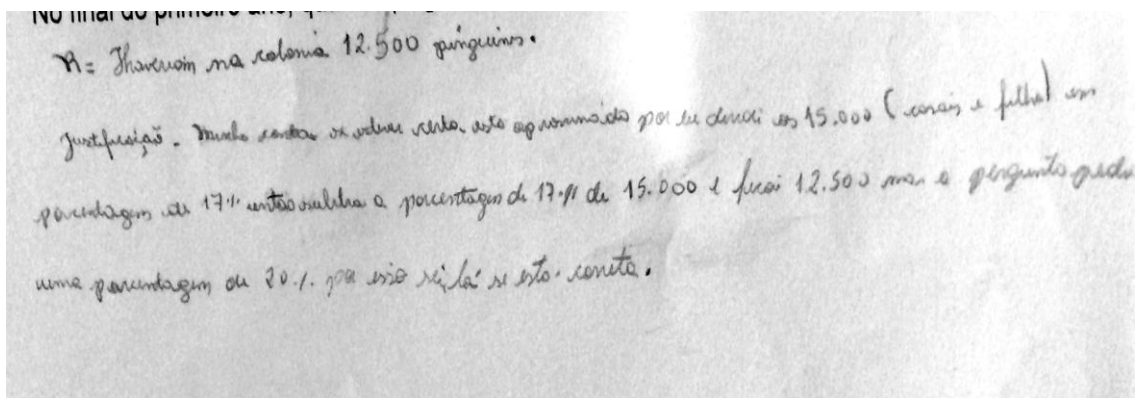 No final do primeiro ano,
R= Haveriam na colonia 12.500 pinguins.
Justificação. Minha contas os valores certa esta aproximado por eu decidi os 15.000 (casais e filho) em
porcentagem de 17% então subitrai a porcentagem de 17% de 15.000 e ficai 12.500 mas a pergunta pedi
uma porcentagem de 20% por isso sei lá se esta correta.